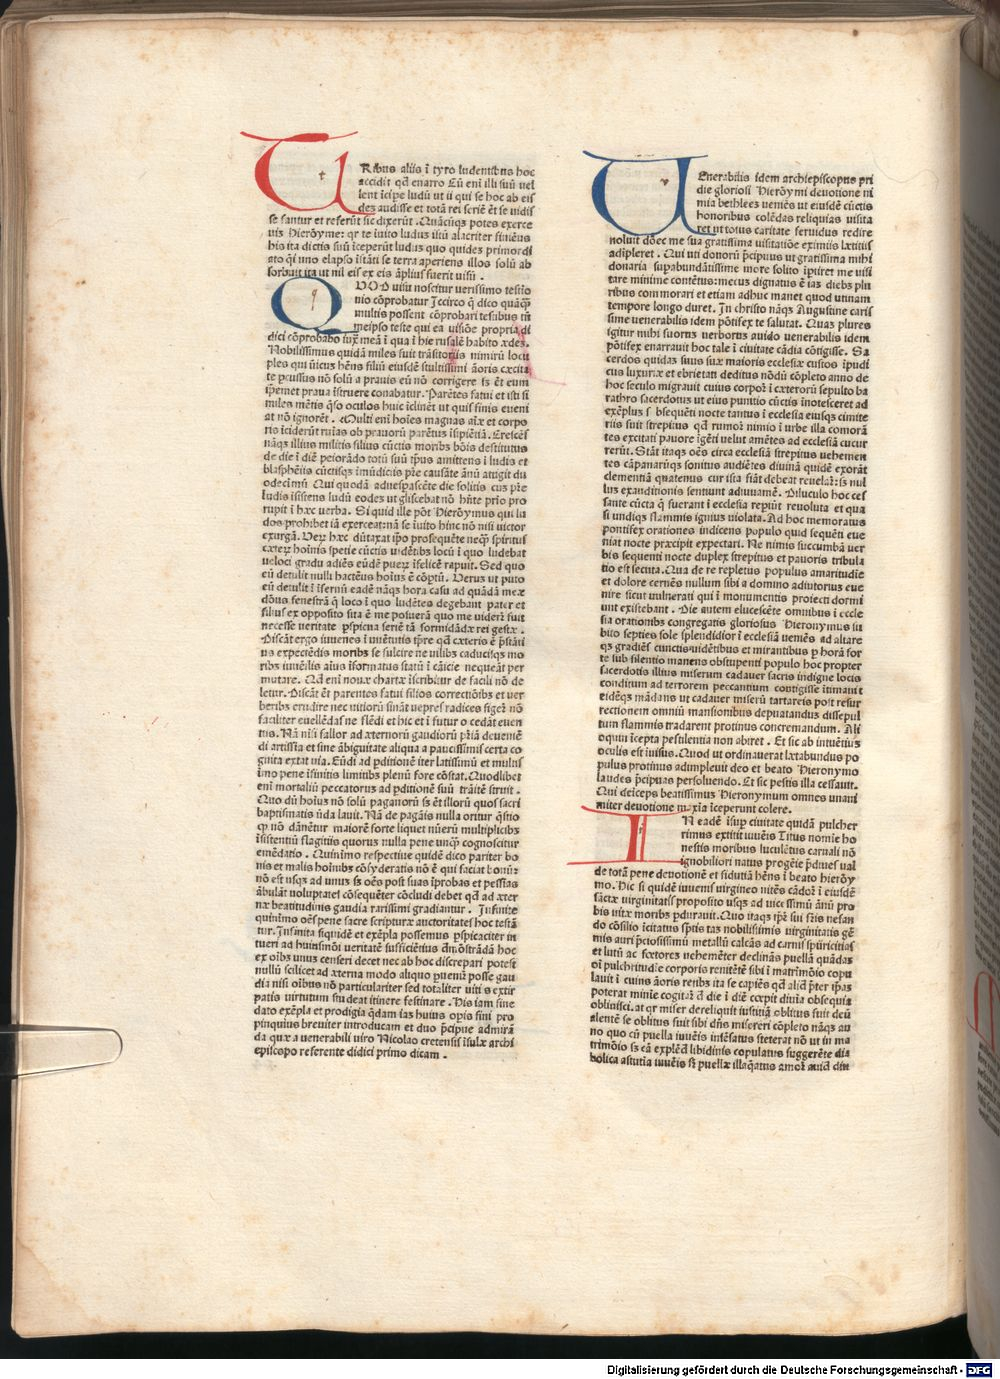 TRibus aliis ī tyro ludentibus hoc
accidit qđ enarro Cū eni illi suū uel
lent īcipe ludū ut ii qui se hoc ab eis
dez audisse et totā rei seriē et se uidis
se fantur et referūt sic dixerūt. Quācūqȝ potes exerce
vis Hierōyme: qr te īuito ludus istū alacriter finiēus
his ita dictis suū īceperūt ludus quo quidez primordi
ato q̄i uno elapso īstāti se terra aperiens illos solū ab
sorbuit ita ut nil eis ex eis āplius fuerit uisū.
QVOD uisu noscitur uerissimo testīo
nio cōprobatur Jccirco q̄ dico quāq̄
multis possent cōprobari testibus tm̄
meipso teste qui ea uisiōe propria di
dici cōprobabo iux̄ meā ī qua ī hierusalē habito ædes.
Nobilissimus quidā miles fuit trāsitoriis nimirū locu
ples qui ūicus hēns filiū eiusdē stultissimi āoris cæcita
te pcussus nō solū a prauis eū nō corrigere sȝ et eum
ipemet praua īstruere conabatur. Parētes fatui et isti si
miles mētis q̄so oculos huic īclinēt ut quis finis eueni
at nō ignorēt. Multi eni hoīes magnas aīæ et corpo
ris īciderūt ruīas ob prauorū parētus īsipiētiā. Crescēs
nāqȝ illius militis filius cūctis moribs bōis destitutus
de die ī diē peiorādo totū suū tp̄us amittens ī ludis et
blasphēiis cūctisqȝ īmūdiciis pr̄e causāte ānū attigit du
odecīmū Qui quodā aduespascēte die solitis cus pr̄e
ludis īsistens ludū eodes ut gliscebat nō hn̄te prīo pro
rupit ī hæc uerba. Si quid ille pōt Hierōymus qui lu
dos prohibet iā exerceat: nā se īuito hinc nō nisi uictor
exurgā. Veȝ hæc dūtaxat īpo prosequēte neqȝ spiritus
cæteȝ hoīnis spetie cūctis uidētibs locū ī quo ludebat
ueloci gradu adiēs eūdē pueȝ īfelicē rapuit. Sed quo
eū detulit nulli hactēus hoīus ē cōptū. Verus ut puto
eū detulit ī īfernū eadē nāqȝ hora casu ad quādā meæ
dōus fenestrā q̄ loco ī quo ludētes degebant pater et
filius ex opposito sita ē me posuerā quo me uiderī fuit
necesse veritate pspicua seriē tā formidādæ rei gestæ.
Discāt ergo iuuenes ī iuuētutis tp̄re qđ cæteris ē p̄stāti
us expectēdis moribs se fulcire ne uilibs caducisqȝ mo
ribs iuuēilis aīus īformatus statū ī cāicie nequeāt per
mutare. Qđ eni nouæ chartæ īscribitur de facili nō de
letur. Discāt et parentes fatui filios correctiōibs et uer
beribs erudire nec uitiorū sināt uepres radices figeȝ nō
faciliter euellēdas ne flēdi et hic et ī futuro cedāt euen
tus. Nā nisi fallor ad æternorū gaudiorū p̄riā deueniē
di artissīa et sine ābiguitate aliqua a paucissimis certa co
gnita extat uia. Eūdi ad pditionē iter latissimū et multis
īmo pene īfinitis limitibs plenū fore cōstat. Quodlibet
eni mortaliū peccatorus ad pditionē suū trāitē struit.
Quo dū hoīus nō solū paganorū sȝ et illorū quos sacri
baptismatis ūda lauit. Nā de pagāis nulla oritur q̄stio
qđ nō dānētur maiorē forte liquet nūerū multiplicibs
īsistentiū flagitiis quorus nulla pene unqȝ cognoscitur
emēdatio. Quinīmo respectiue quidē dico pariter bo
nis et malis hoīnibs cōsyderatis nō ē qui faciat bonū:
nō est usqȝ ad unus sȝ oēs post suas īprobas et pessīas
ābulāt voluptates cōsequēter cōcludi debet qđ ad æter
næ beatitudinis gaudia rarissimi gradiantur. Jnfinite
quinimo oēs pene sacre scripturæ auctoritates hoc testā
tur. Jnfinita siquidē et exēpla possemus pspicaciter in
tueri ad huiusmōi ueritatē sufficiētius dmōstrādā hoc
ex oībs unus censeri decet nec ab hoc discrepari potest
nullū scilicet ad æterna modo aliquo pueniȝ posse gau
dia nisi oībus nō particulariter sed totaliter uitiis extir
patis virtutum studeat itinere festinare. His iam fine
dato exēpla et prodigia q̄dam ias huius opis fini pro
pinquius breuiter introducam et duo p̄cipue admirā
da quæ a venerabili viro Nicolao cretensis īsulæ archi
episcopo referente didici primo dicam.
VEnerabilis idem archiepiscopus pri
die gloriosi Hierōymi deuotione ni
mia bethlees ueniēs ut eiusdē cūctis
honoribus colēdas reliquias visita
ret ut totus caritate feruidus redire
noluit dōec me sua gratissima uisitatiōe eximiis lætitiis
adīpleret. Qui uti donorū p̄cipuus ut gratissima mihi
donaria supabundātissime more solito īptiret me visi
tare minime contētus: mecus dignatus ē ias diebs plu
ribus commorari et etiam adhuc manet quod utinam
tempore longo duret. Jn christo nāqȝ Augustine caris
sime uenerabilis idem pōtifex te salutat. Quas plures
igitur mihi suorus uerborus auido uenerabilis idem
pōtifex enarrauit hoc tale ī ciuitate cādia cōtigisse. Sa
cerdos quidaȝ suus suæ maioris ecclesiæ custos īpudi
cus luxuriæ et ebrietati deditus nōdū cōpleto anno de
hoc seculo migrauit cuius corpoȝ ī cæterorū sepulto ba
rathro sacerdotus ut eius punitio cūctis īnotesceret ad
exēplus sbsequēti nocte tantus ī ecclesia eiusqȝ cimite
riis fuit strepitus qđ rumoȝ nimio ī urbe illa comorā
tes excitati pauore īgēti uelut amētes ad ecclesiā cucur
rerūt. Stāt itaqȝ oēs circa ecclesiā strepitus vehemen
tes cāpanarūqȝ sonitus audiētes diuinā quidē exorāt
clementiā quatenus cur ista fiāt debeat reuelaȝ: sȝ nul
lus exauditionis sentiunt adiuuamē. Diluculo hoc ces
sante cūcta q̄ fuerant ī ecclesia repiūt reuoluta et qua
si undiqȝ flammis ignius uiolata. Ad hoc memoratus
pontifex orationes indicens populo quid sequēti eue
niat nocte præcipit expectari. Ne nimis succumbā uer
bis sequenti nocte duplex strepitus et pauoris tribula
tio est secuta. Qua de re repletus populus amaritudīe
et dolore cernēs nullum sibi a domino adiutorius eue
nire sicut vulnerati qui ī monumentis proiecti dormi
unt existebant. Die autem elucescēte omnibus ī eccle
sia orationibs congregatis gloriosus Hieronymus iu
bito septies sole splendidior ī ecclesiā ueniēs ad altare
qȝ gradiēs cunctis uidētibus et mirantibus p horā for
te sub silentio manens obstupenti populo hoc propter
sacerdotis illius miserum cadauer sacris indigne locis
conditum ad terrorem peccantium contigisse ītimauit
eidēqȝ mādans ut cadauer miserū tartareis post resur
rectionem omniū mansionibus deputandus dissepul
tum flammis tradarent protinus concremandum. Ali
oquin īcepta pestilentia non abiret. Et sic ab intuētius
oculis est īuisus. Quod ut ordinauerat lætabundus po
pulus protinus adimpleuit deo et beato Hieronymo
laudes p̄cipuas persoluendo. Et sic pestis illa cessauit.
Qui deiceps beatissimus Hieronymum omnes unani
miter deuotione maxīa īceperunt colere.
IN eadē īsup ciuitate quidā pulcher
rimus extitit iuuēis Titus nomīe ho
nestis moribus luculētus carnali nō
ignobiliori natus progēie p̄diues ual
de totā pene deuotionē et fidutiā hēns ī beato hierōy
mo. Hic si quidē iuuenis virgineo nitēs cādoȝ ī eiusdē
sāctæ virginitatis proposito usqȝ ad uicessimū ānū pro
bis uitæ moribs pdurauit. Quo itaqȝ īpē sui fr̄is nefan
do cōsilio īcitatus sptis tas nobilissimis virginitatis gē
mis auri p̄ciosissimū metallū calcās ad carnis spūricitias
et lutū ac fœtores uehemēter declināȝ puellā quādas
oī pulchritudīe corporis renitētē sibi ī matrīmōio copu
lauit ī cuius āoris retibs ita se capiēs qđ aliqđ p̄ter ip̄as
poterat minīe cogitaȝ đ die ī diē cœpit diuīa obsequia
obliuisci. at qr miser dereliquit iustitiā oblitus fuit deū
alentē se oblitus fuit sibi dn̄s misereri cōpleto nāqȝ au
no quo cū puella iuuēis īsēsatus steterat nō ut in ma
trimōio sȝ cā explēđ libidinis copulatus suggerēte dia
bolica astutīa iuuēis sȝ puellæ illaq̄atus amoȝ auiđ diu
Digitalisierung gefördert durch die Deutsche Forschungsgemeinschaft - DFG